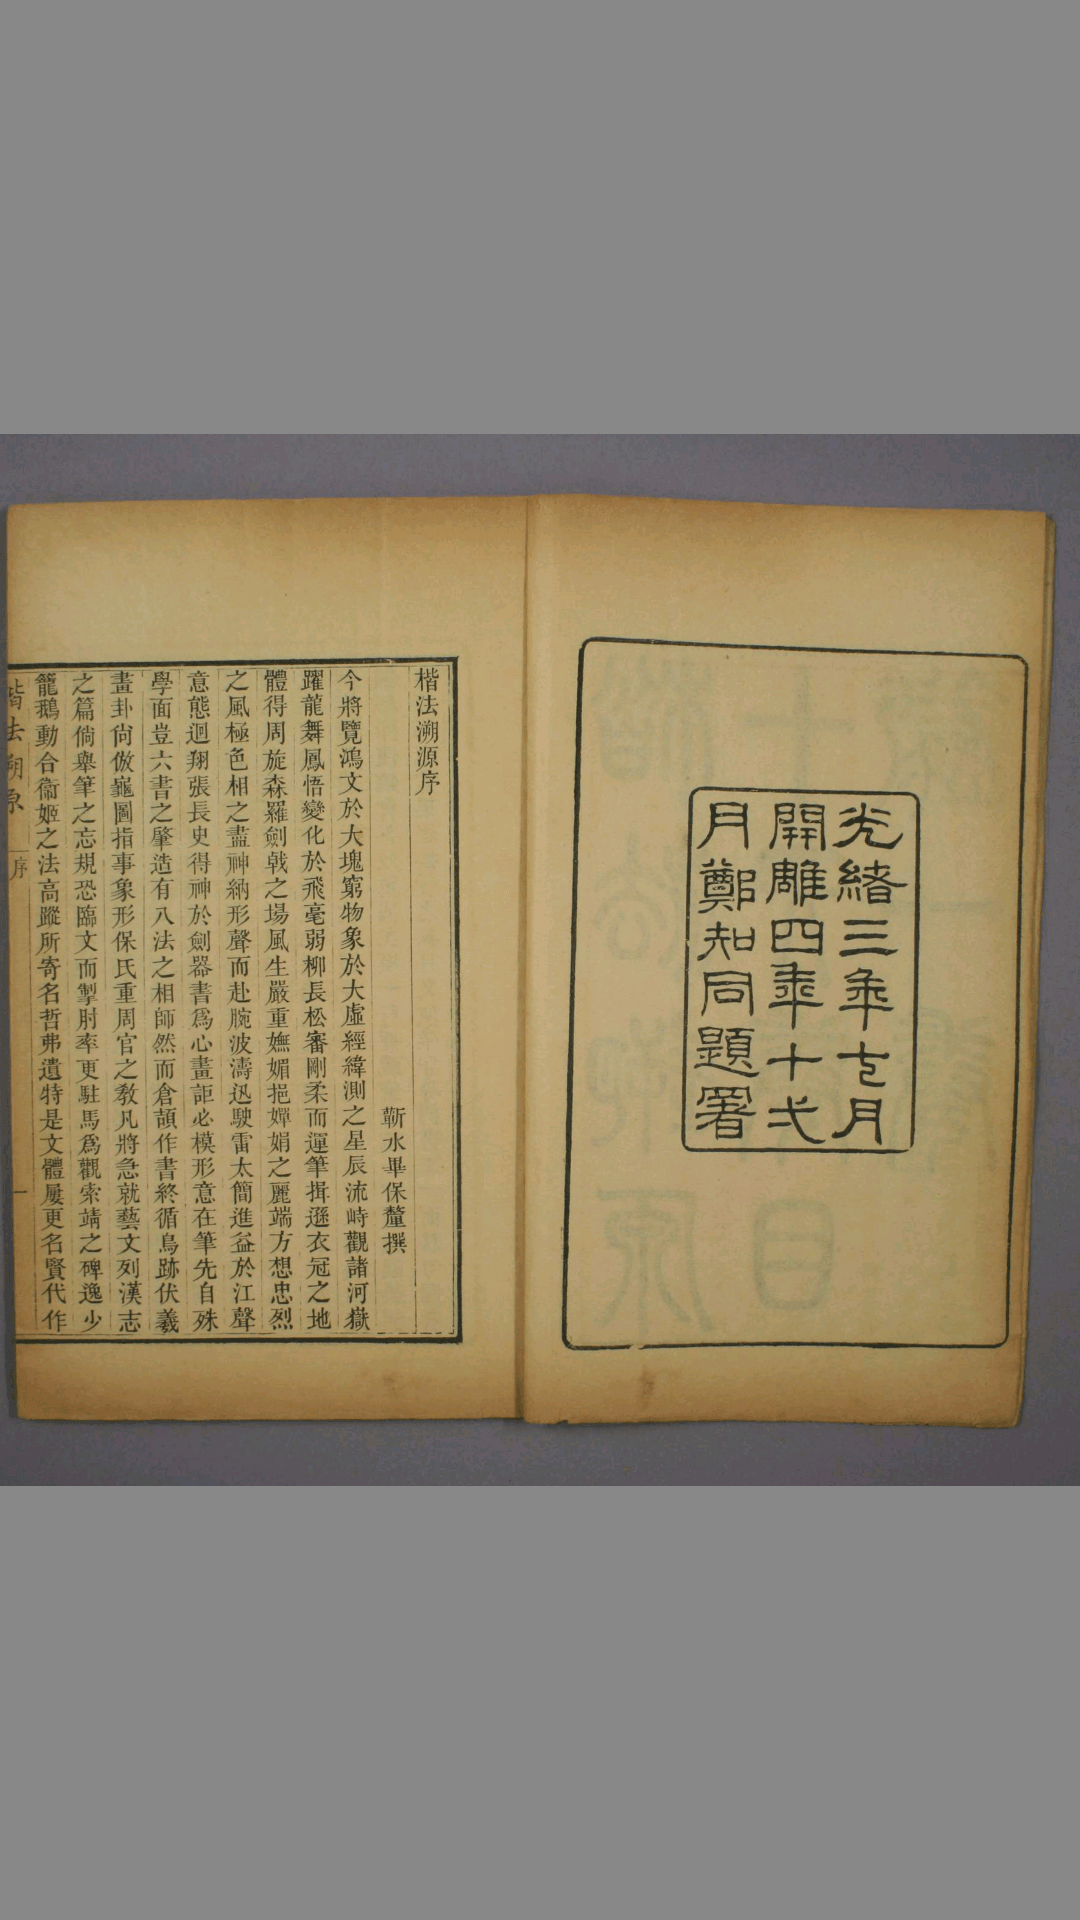 光緒三年七月
開雕四年十弍
月鄭知同題署
楷法溯源序
蘄水畢保釐撰
今將覽鴻文於大塊窮物象於大虛經緯測之星辰流峙觀諸河嶽
躍龍舞鳳悟變化於飛毫弱柳長松審剛柔而運筆揖遜衣冠之地
體得周旋森羅劍戟之場風生嚴重嫵媚挹嬋娟之麗端方想忠烈
之風極色相之盡神納形聲而赴腕波濤迅駛雷太簡進益於江聲
意態迴翔張長史得神於劍器書爲心畫詎必模形意在筆先自殊
學面豈六書之肇造有八法之相師然而倉頡作書終循鳥跡伏羲
畫卦尚倣龜圖指事象形保氏重周官之教凡將急就藝文列漢志
之篇倘舉筆之忘規恐臨文而掣肘率更駐馬爲觀索靖之碑逸少
籠鵝動合衞姬之法高蹤所寄名哲弗遺特是文體屢更名賢代作
楷法溯原
序
一